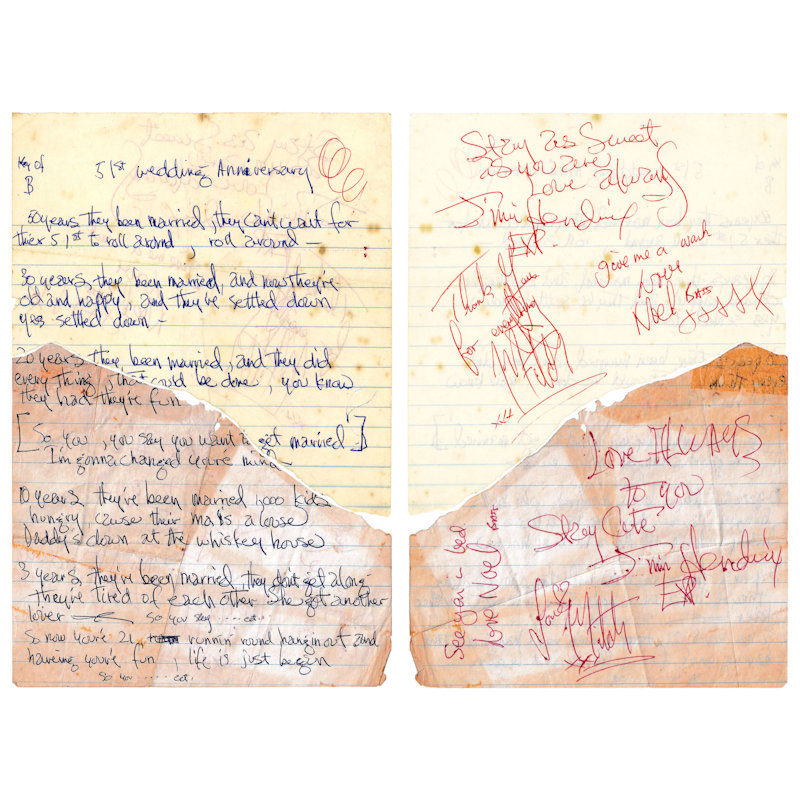 Key of
B
51st wedding Anniversary
50 years they been married, they can't wait for
thier 51st to roll around, roll around —
30 years, they been married, and now they're
old and happy, and they've settled down
yes settled down —
20 years they been married, and they did
every thing, that could be done, you know
they had they're fun
[So you, you say you want to get married]
I'm gonna changed youre mind
10 years they've been married 1,000 kids
hungry cause their ma's a louse
Daddy's down at the whiskey house
3 years, they've been married, they don't get along
they're tired of each other She got another
lover So you say ..... ect..
So now you're 21, runnin' round hangin out and
haveing you're fun, life is just begin
So you ..... ect..
Stay as Sweet
as you are
Love always
Jimi Hendrix
EXP.
Thank you
for everything
Mitch
xxx
give me a wash
Love
Noel Bass
xxxxx
Love ALWAYS
to you
Stay Cute
Jimi Hendrix
EXP.
See you in bed
Love Noel Bass
Love
Mitch
xx